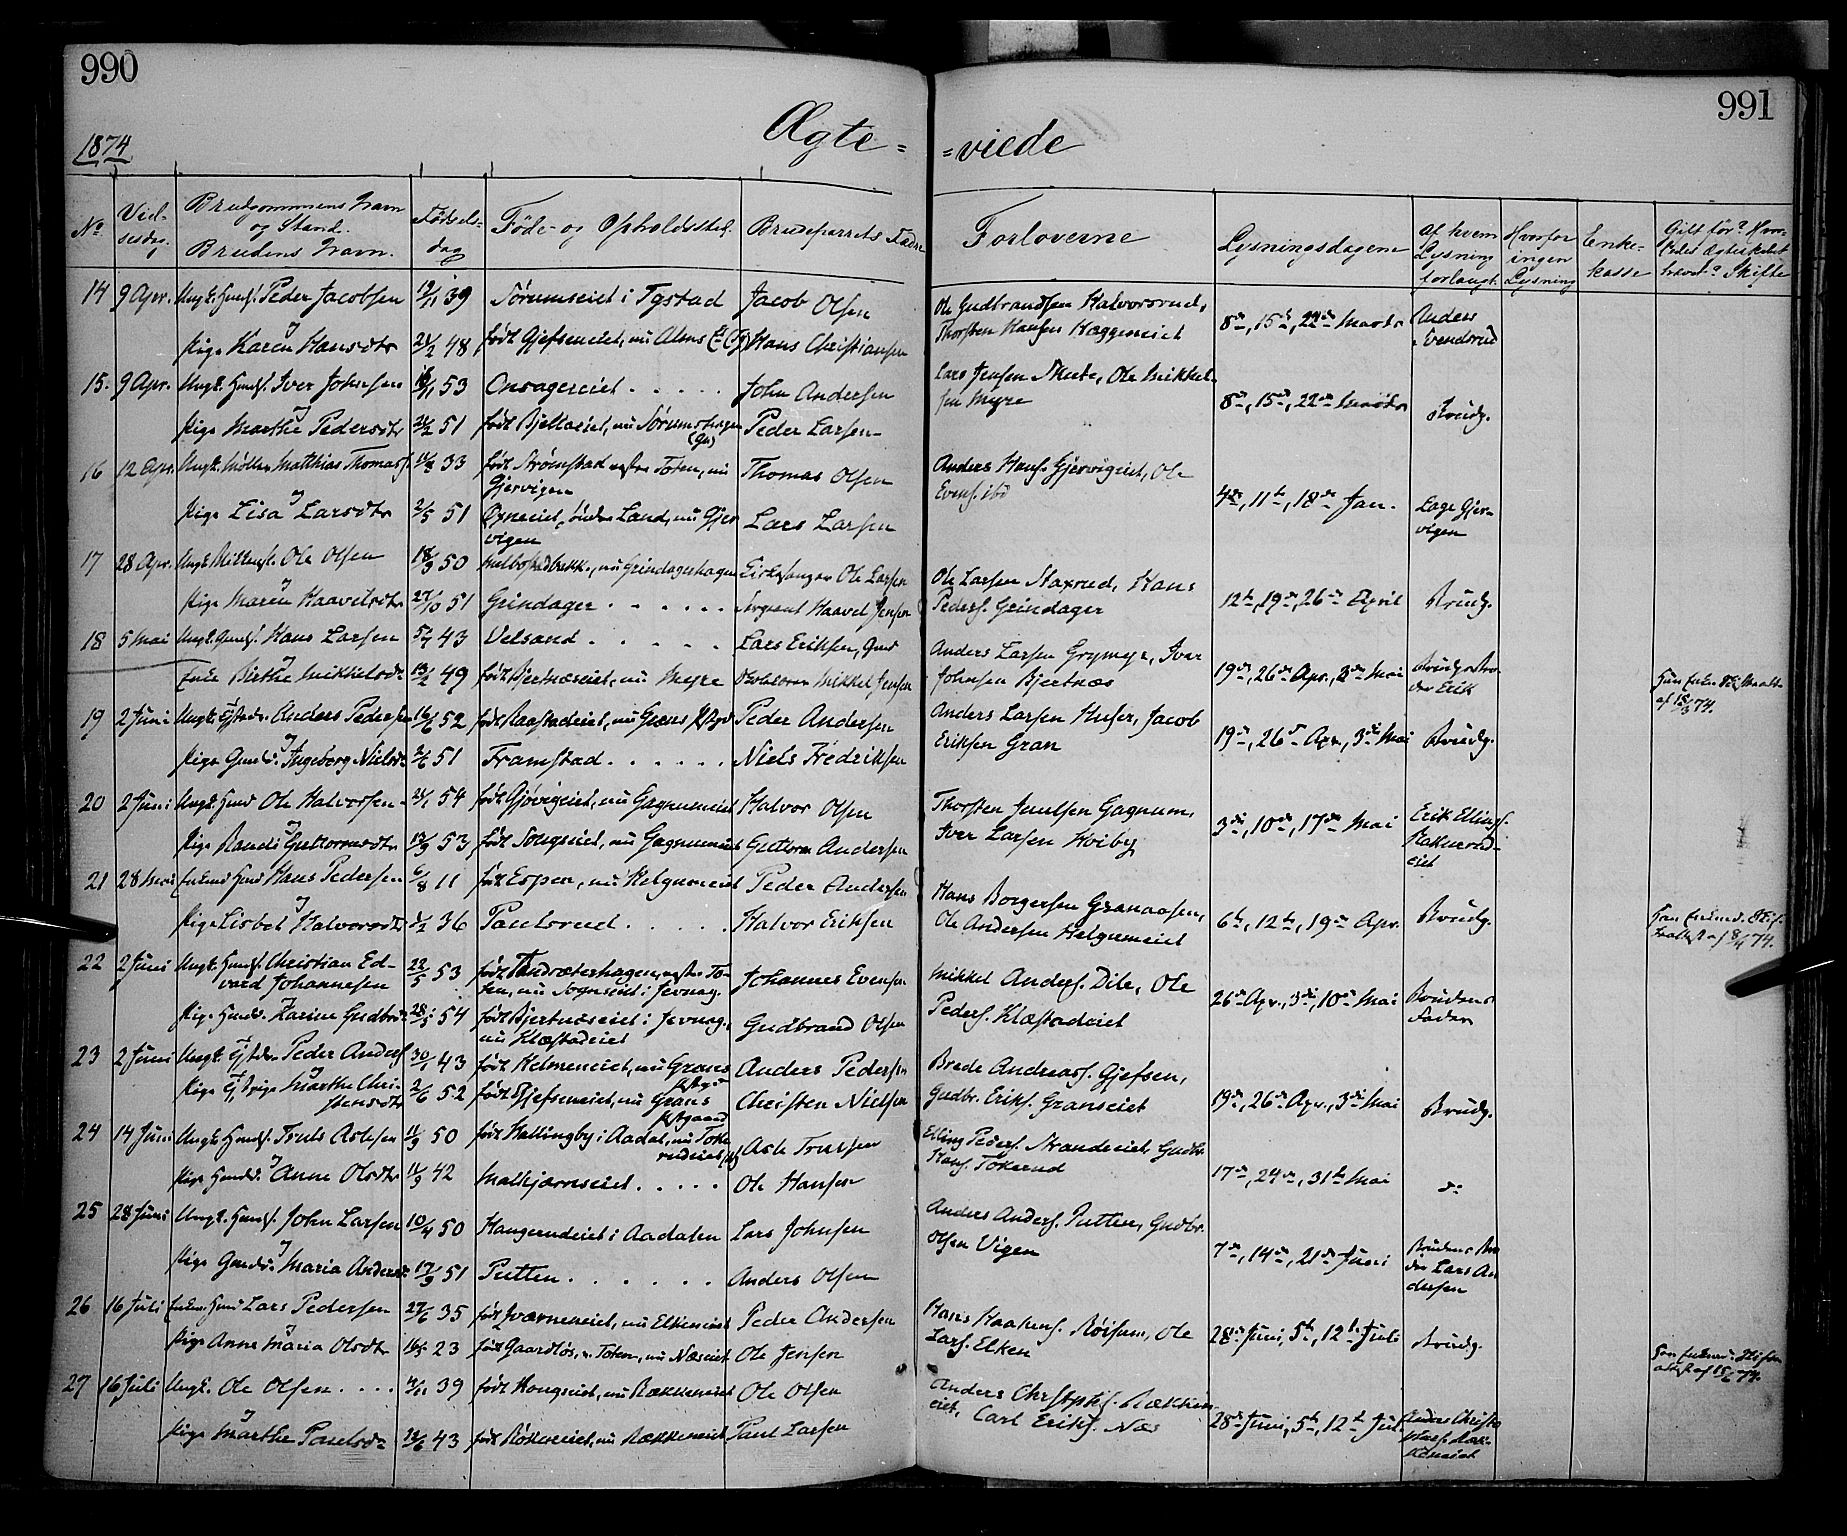 990
991
1874
Ægte=
=viede
No.
Vielsesdag.
Brudgommens Navn og Stand. Brudens Navn.
Fødselsdag
Føde- og Opholdssted
Brudeparrets Fædre
Forloverne
Lysningsdagene
Af hvem Lysning forlangt.
Hvorfor ingen Lysning
Enkekasse
Gift før? Skifte
14 9 Apr. Ungk. Huusf. Peder Jacobsen 39 Sørumseiet i Tgstad Jacob Olsen
Ole Gudbrandsen Halvorsrud, Thorsten Hansen Hæggeneiet 8de, 15de, 22de Marts Anders Evendsrud
Pige Karen Hansdtr 48 født Gjefseneiet, nu Alms Hans Christiansen
15. 9 Apr. Ungk. Huusf. Iver Johnsen 53 Onsagereiet . . . . . John Andersen
Lars Jensen Ole Mikkelsen Myre 8de, 15de, 22de Marts Brudg.
Pige Marthe Pedersdtr 51 født Bjelkaseiet, nu Sørumshagen Peder Larsen
16 12 Apr. Ungk. Møller Matthias Thomasf. 33 født Strømstad vestre Toten, nu Gjøvigen Thomas Olsen
Anders Hans. Gjøvigeiet, Ole Evens. ibd 4de, 11te, 18de Jan. Lage Gjøvigen
Pige Lisa Larsdtr 2/5 51 Øxneeiet, Søndre Land, nu Gjøvigen Lars Larsen
17 28 Apr. Ungk. Ole Olsen 18/9 50 nu Grindagerhagen Kirkesanger Ole Larsen
Ole Larsen Staxrud, Hans Peders. Grindager 12te, 19de, 26de April Brudg.
Pige Maren Haavelsdtr 27/10 51 Grindager . . . . . . Sergeant Haavel Jensen
18 5 Mai Ungk. Gaardf. Hans Larsen 43 Velsand . . . . . Lars Eriksen, Gmd
Anders Larsen Grymyr, Iver Johnsen Bjertnæs 19de, 26de Apr., 3die Mai Brudgs Broder Erik
Enke Birthe Mikkelsdtr 13/2 49 født Bjertnæseiet, nu Myre Mikkel Jensen
Hun Enke. af 74.
19 2 Juni Ungk. Tjstdr. Anders Pedersen 52 født Raastadeiet, nu Grans Pstgd Peder Andersen
Anders Larsen Huser, Jacob Eriksen Gran 19de, 26de Apr., 3die Mai Brudg.
Pige Gmds. Ingeborg Nielsdtr 51 Framstad . . . . . . Niels Fredriksen
20 2 Juni Ungk. Hmd Ole Halvorsen 54 født Gjøvigeiet, nu Gagnumeiet Halvor Olsen
Thorsten Juulsen Gagnum, Iver Larsen Hvieby 3die, 10de, 17de Mai Erik Ellings. Haknerudeiet
Pige Randi Guttormsdtr 13/9 53 født Sougseiet, nu Gagnumeiet Guttorm Andersen
21 28 Enkemd Hmd Hans Pedersen 6/8 11 født Espen, nu Helgumeiet Peder Andersen
Hans Borgersen Granaasen, Ole Andersen Helgumeiet 6te, 12te, 19de Apr. Brudg.
Pige Lisbet Halvorsdtr 36 Paulsrud . . . . . Halvor Eriksen
Han Enkemd. Skifteattest af 8/4 74.
22 2 Juni Ungk. Huusf. Christian Edvard Johannesen 22/5 53 født vestre Toten, nu Sognseiet i Jevnag. Johannes Evensen
Mikkel Anders. Dile, Ole Peders. Klæstadeiet 26de Apr., 3die, 10de Mai Brudens Fader
Pige Huusds. Karine Gudbrdtr 54 født Bjertnæseiet i Jevnag., nu Klæstadeiet Gudbrand Olsen
23 2 Juni Ungk. Tjstdr. Peder Anders. 43 født Helmeneiet, nu Grans Pstgd Anders Pedersen
Brede Andreass. Gjefsen, Gudbr. Eriks. Granseiet 19de, 26de Apr., 3die Mai Brudg.
Pige Tj.Pige Marthe Christensdtr 52 født Gjefseneiet, nu Grans Pstgaard Christen Nielsen
24 14 Juni Ungk. Huusf. Truls Asksen 11/9 50 født Hallingby i Aadal, nu Tokerudeiet Ask Trulsen
Elling Peders. Strandeiet, Gudbr. Hans. Tokerud 17de, 24de, 31te Mai do
Pige Huusds. Anne Olsdtr 42 Malkjærnseiet . . . . . Ole Hansen
25 28 Juni Ungk. Huusf. John Larsen 10/4 50 Haugerudeiet i Aadalen Lars Johnsen
Anders Anders. Putten, Gudbr. Olsen Vigen 7de, 14de, 21de Juni Brudens Broder Lars Andersen
Pige Gmds. Maria Andersdtr 17/9 51 Putten . . . . . . Anders Olsen
26 16 Juli Enkem. Hmd Lars Pedersen 35 født Iværneneiet, nu Elkeneiet Peder Andersen
Hans Haakens. Røisum, Ole Lars. Elken 28de Juni, 5te, 12te Juli Brudg.
Pige Anne Maria Olsdtr 23 født Gaardløs, v. Toten, nu Næseiet Ole Jensen
Han Enkemd. Skifteattest af 74.
27 16 Juli Ungk. Ole Olsen . . . . 39 født Hougseiet, nu Rækkeneiet Ole Olsen
Anders Christophs. Rækkeneiet, Carl Eriks. Næs 28de Juni, 5te, 12te Juli Anders Christophers. Rækkeneiet
Pige Marthe Paulsdtr 43 født Røkeneiet, nu Rækkeneiet Paul Larsen